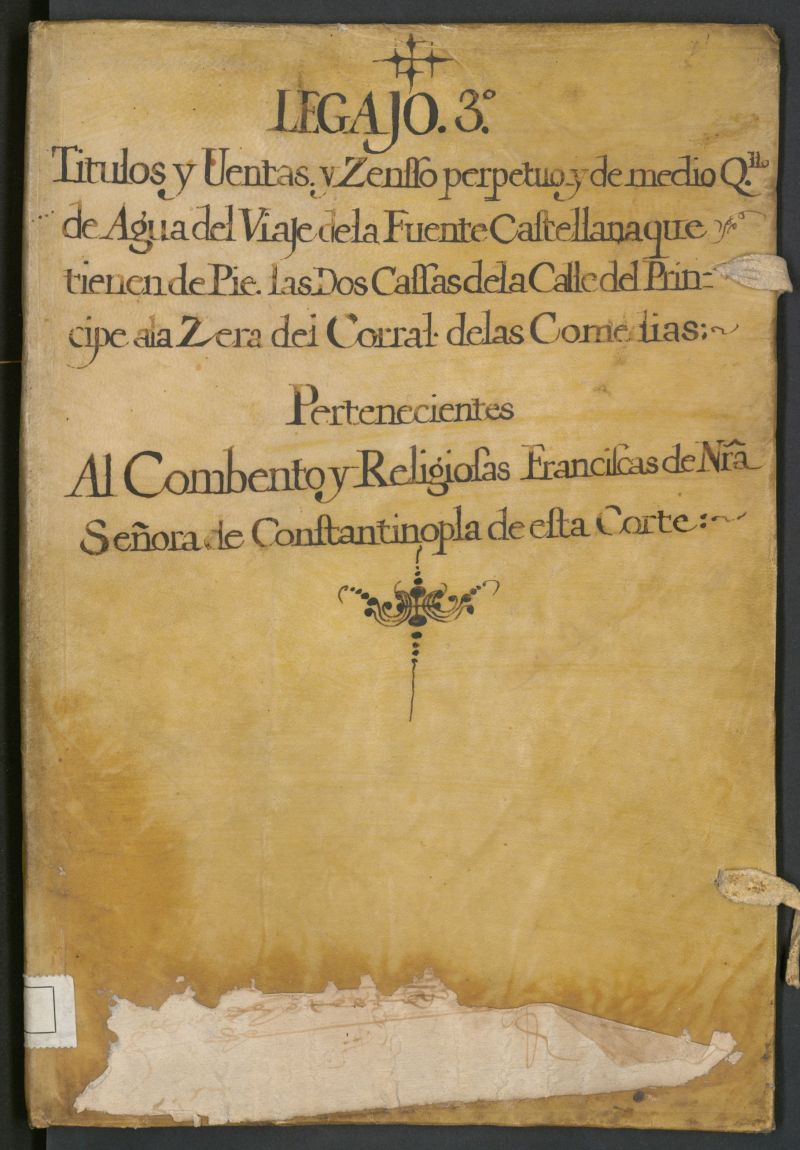 LEGAJO. 3.º
Titulos y Uentas. y Zenſſo perpetuo y de medio Q.llo
de Agua del Viaje de la Fuente Caſtellana que
tienen de Pie. las Dos Caſſas de la Calle del Prin=
cipe a la Zera del Corral. de las Comedias:~
Pertenecientes
Al Combento y Religioſas Franciſcas de Nrã
Señora de Conſtantinopla de eſta Corte:~